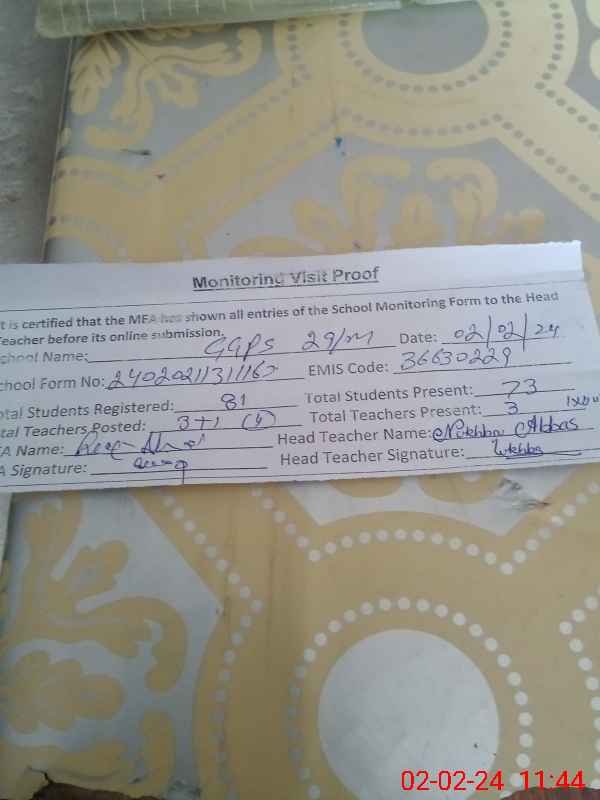 Monitoring Visit Proof
t is certified that the MEA has shown all entries of the School Monitoring Form to the Head
eacher before its online submission.
chool Name: GGPS 29/M Date: 02/02/24
chool Form No: EMIS Code: 36630229
otal Students Registered: 81 Total Students Present: 73
tal Teachers Posted: 3+1 (4) Total Teachers Present: 3
EA Name: Head Teacher Name: Abbas
A Signature: Head Teacher Signature:
02-02-24 11:44